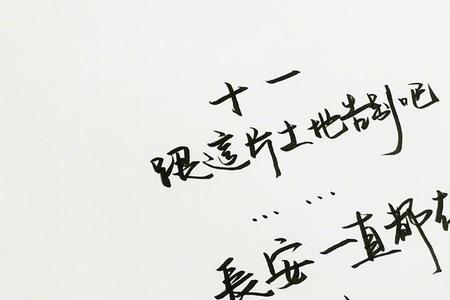 十一
跟這片土地告别吧
……
長安一直都在